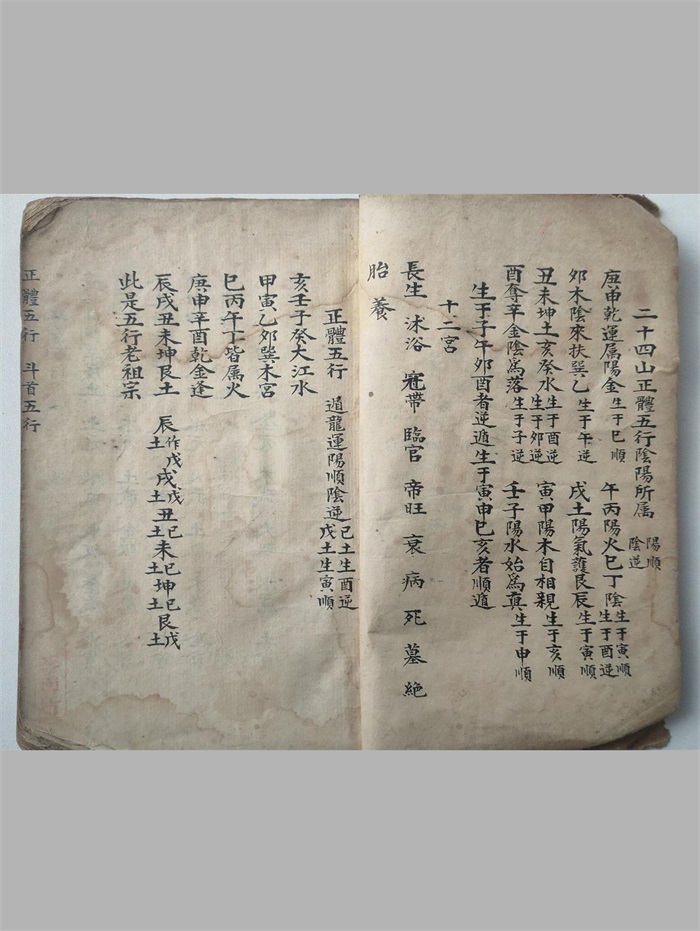 二十四山正體五行陰陽所属 陽順陰逆
庚申乾運属陽金生于巳順 午丙陽火巳丁陰生于寅順生于酉逆
卯木陰來扶巽乙生于午逆 戌土陽氣護艮辰生于寅順
丑未坤土亥癸水生于酉逆生于卯逆 寅甲陽木自相親生于亥順
酉奪辛金陰爲落生于子逆 壬子陽水始爲真生于申順
生于子午卯酉者逆遁生于寅申巳亥者順遁
十二宮
長生 沐浴 冠帶 臨官 帝旺 衰 病 死 墓 絶
胎 養
正體五行 遁龍運陽順陰逆己土生酉逆戊土生寅順
亥壬子癸大江水
甲寅乙卯巽木宮
巳丙午丁皆属火
庚申辛酉乾金逢
辰戌丑未坤艮土 辰作戊土戌戊土丑己土未己土坤己土艮戊土
此是五行老祖宗
正體五行 斗首五行